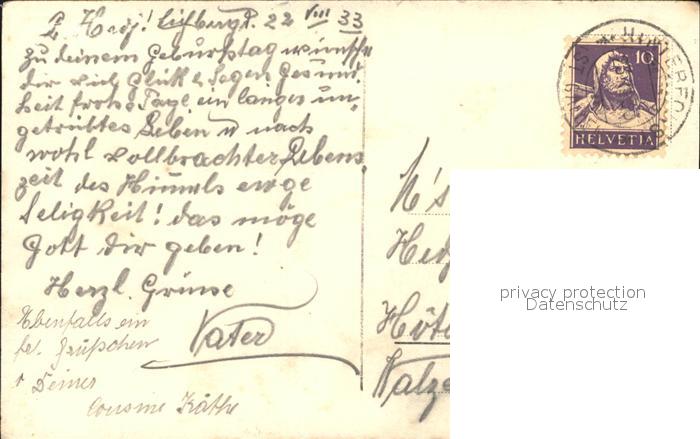 L. Hedj! Lichberg 22 VIII 33
zu deinem Geburtstag wünsche
dir viel Glük & Segen Gesund-
heit frohe Tage ein langes un-
getrübtes Leben u nach
wohl vollbrachter Lebens
zeit des Himmels ewge
Seligkeit! das möge
Gott dir geben!
Herzl. Grüsse
Vater
Ebenfalls ein
frl. Grüßchen
v Deiner
Cousine Käthe
10
HELVETIA
privacy protection
Datenschutz